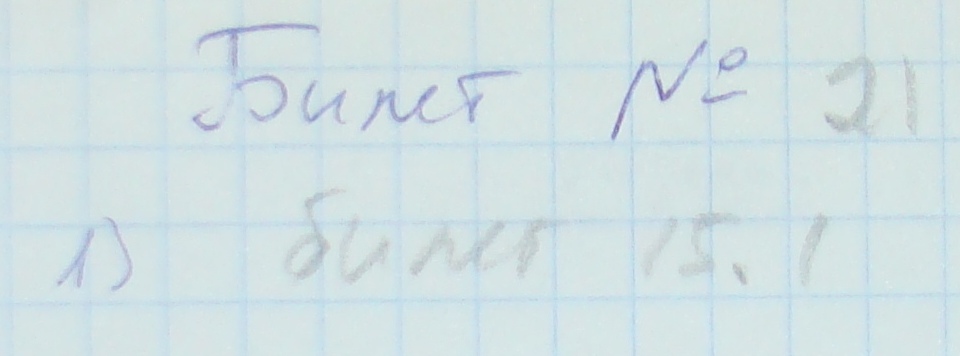 Билет № 21
1) билет 15.1